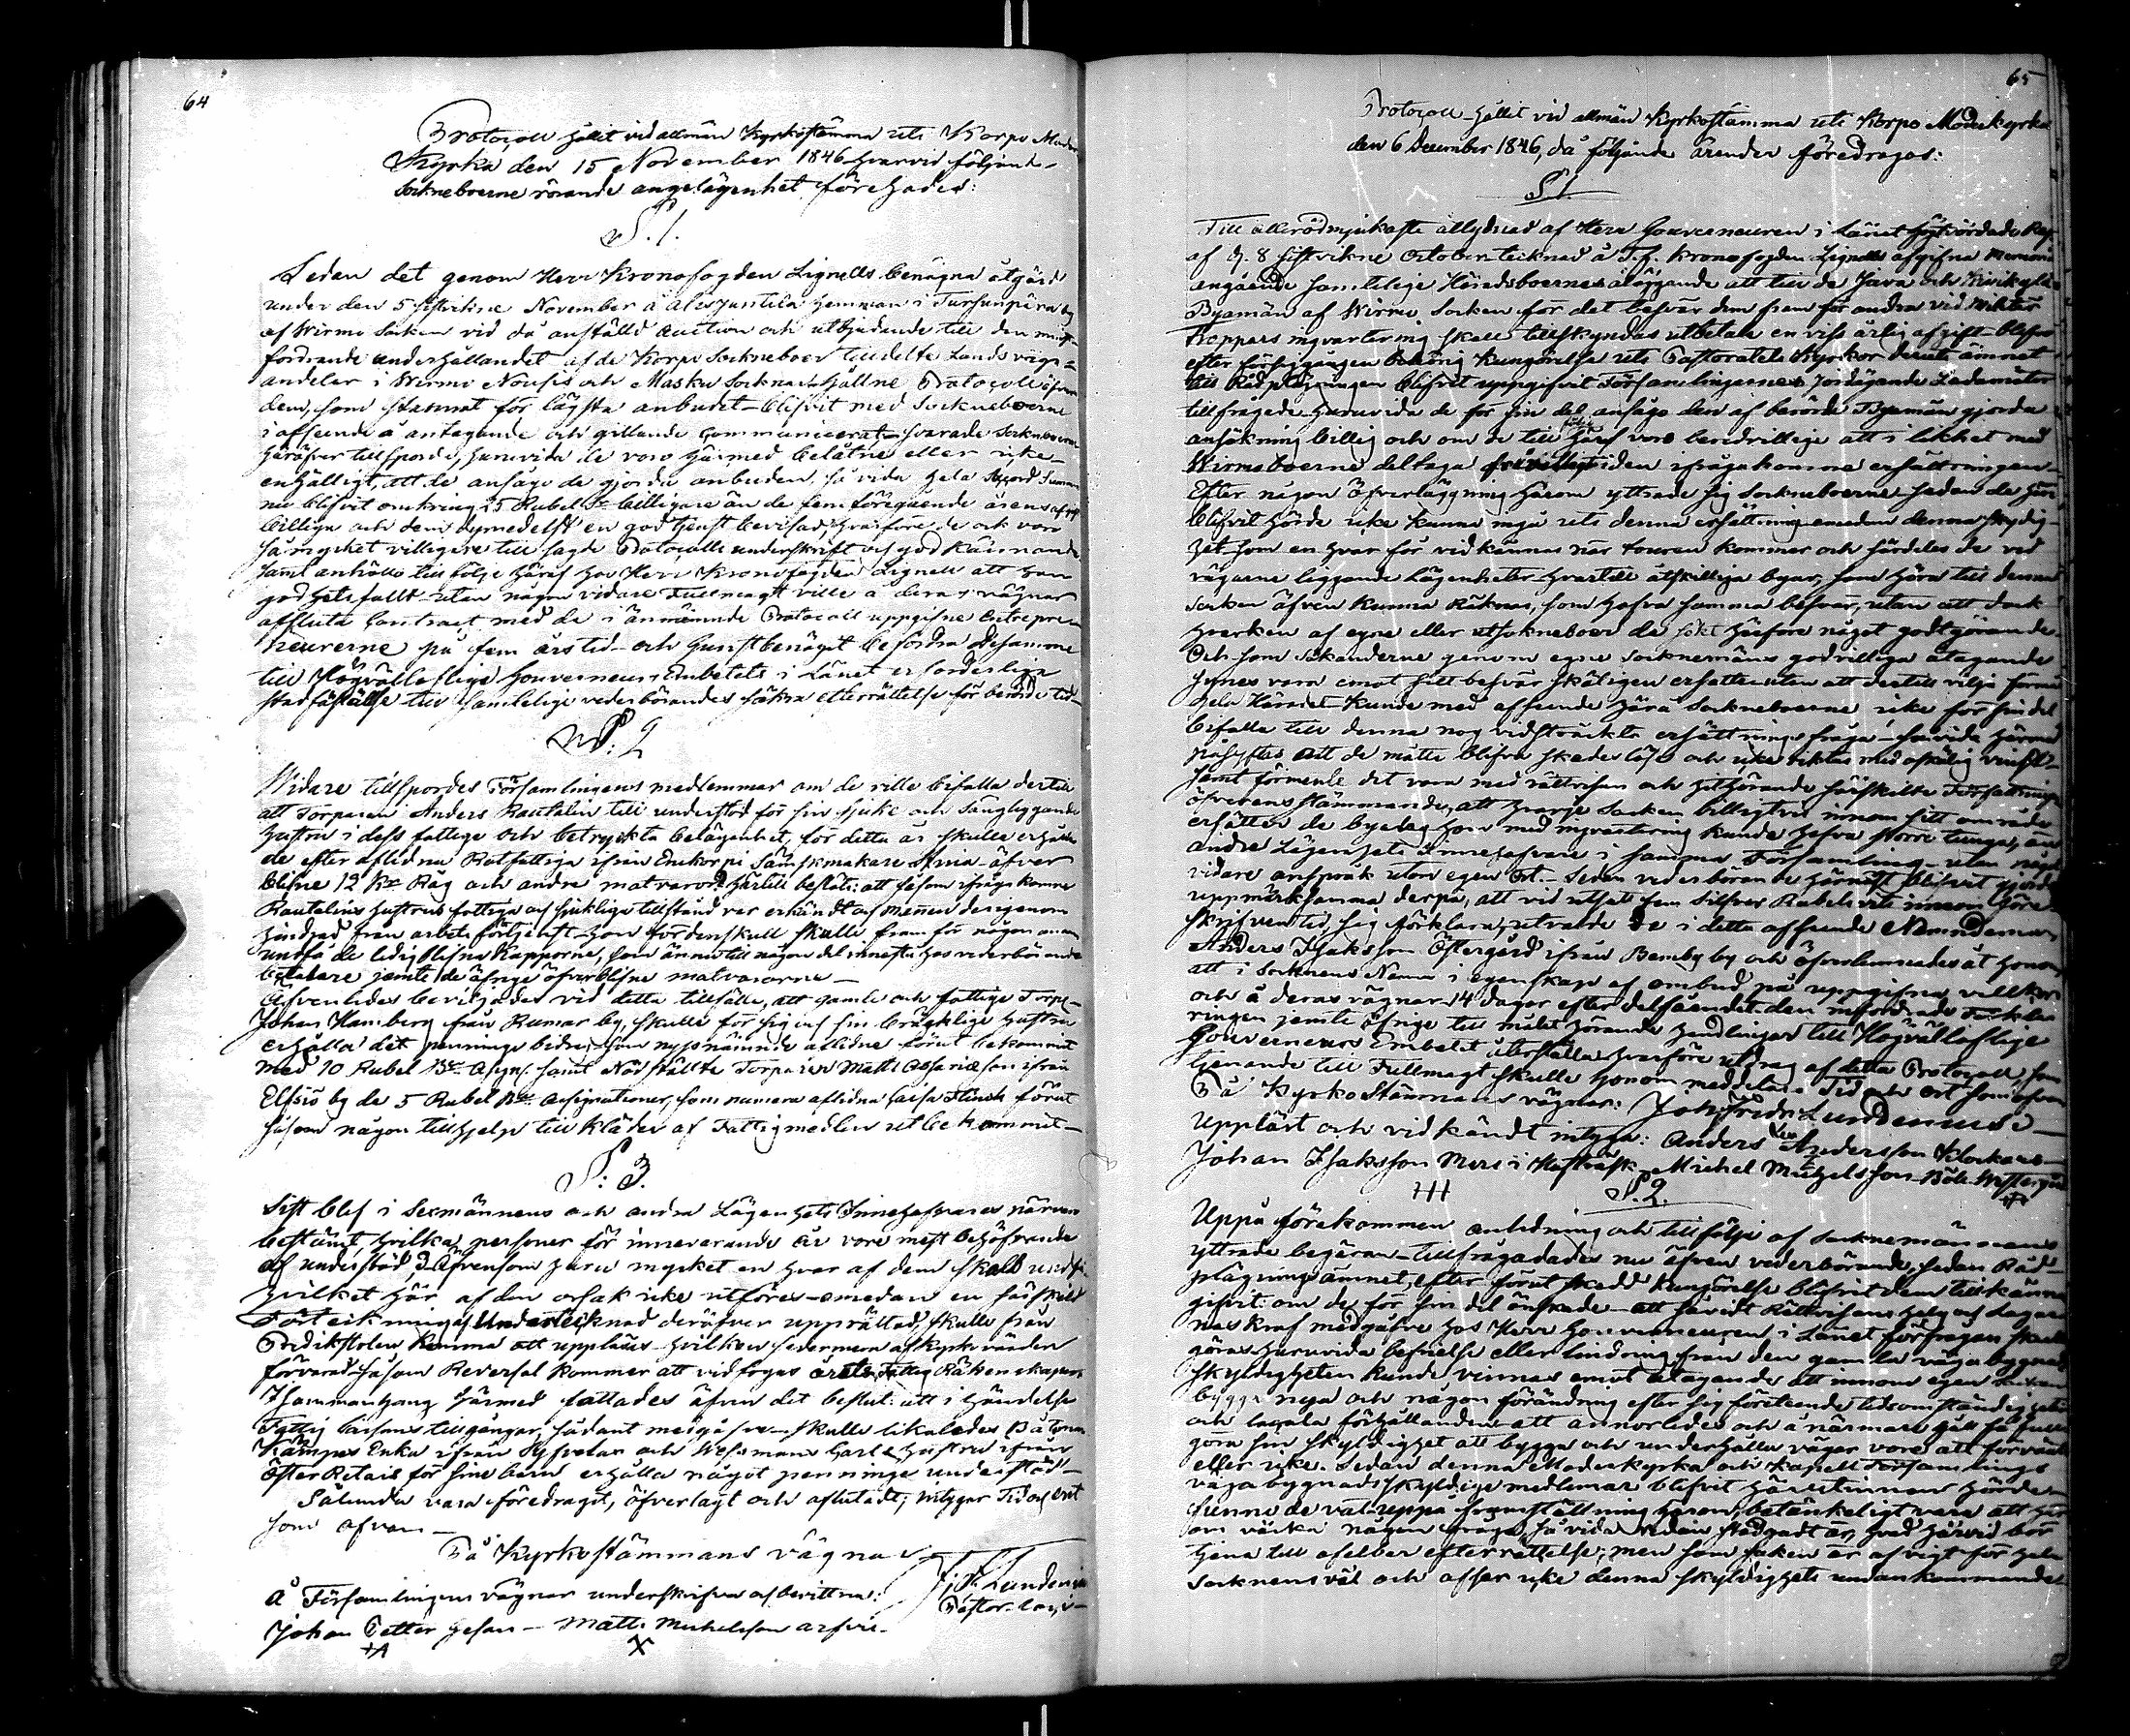 64
Protocoll hållit vid allmän Kyrkostämma uti Korpo Moder
Kyrka den 15 November 1846 hvarvid följande
Sockneboerne rörande angelägenhet förehades:
S. 1.
Sedan det genom Herr Kronofogden Lignells benägna åtgärd
under den 5 sistvikne November å hemman i by
af Wirmo Socken vid då anställd auction och utbjudande till den minst
fordrande underhållandet af de Korpo Sockneboer tilldelte Lands vägs-
andelar i Wirmo Nousis och Masku Socknar hållne Protocoll öfver
dem, som stannat för lägsta anbudet blifvit med Sockneboerne
i afseende å antagande och gillande communicerat, svarade Sockneboerne
häröfver tillsporde, huruvida de voro härmed belåtne eller icke
enhälligt, att de ansågo de gjorda anbuden, så vida hela Summan
nu blifvit omkring 15 Rubel billigare än de fem föregående årens
billiga och dem dymedelst en god tjenst bevisad, hvarföre de ock voro
så mycket villigare till sagde Protocolls underskrift och godkännande
samt anhöllo till följe häraf hos Herr Kronofogden Lignell att han
godhetsfullt utan någon vidare Fullmagt ville å deras vägnar
afsluta Contract med de i änämnde Protocoll uppgifne Entrepre-
neurerne på fem års tid och Gunstbenäget befordra detsamma
till Högvälloflige Gouverneurs Embetets i Länet erforderliga
stadfästelse till samtelige vederbörandes säkra efterrättelse för berörde tid
S: 2
Widare tillspordes Församlingens medlemmar om de ville bifalla dertill
att Torparen Anders Rautalin till understöd för sin sjuke och sängliggande
hustru i dess fattige och betryckta belägenhet, för detta år skulle erhålla
de efter aflidna Rotfattiga ifrån Enkorpi Sämskmakare öfver
blifne 12 Råg och andre matvaror. Härtill beslöts: att såsom ifrågakomne
Rautalins hustrus fattiga och sjukliga tillstånd var erkändt och mannen derigenom
hindrad från arbetsförtjenst han fördenskull skulle fram för någon annan
undfå de ledigblifna Kapporne, som ännu till någon del innestå hos vederbörande
betalare jemte de öfrige öfverblifne matvarorne
Äfvenledes beviljades vid detta tillfälle, att gamle och fattige Torp.
Johan Hamberg från Rumar by, skulle för sig och sin bräcklige hustru
erhålla det penninge bidrag som nyssnämnde aflidne förut bekommit
med 10 Rubel Bco Assign. samt Nödställte Torparen Matts ifrån
Elfsiö by de 5 Rubel Bco Assignationer, som numera aflidna Caisa Flinck förut
såsom någon tillhjelp till kläder af Fattigmedlen utbekommit
S: 3.
Sist blef i Sexmännens och andra Lägenhets Innehafvares närvaro
bestämt, hvilka personer för innevarande år vore mest behöfvande
af understöd, äfvensom huru mycket en hvar af dem skall undfå
hvilket här af den orsak icke utföres emedan en särskild
Förteckning af Undertecknad deröfver upprättad, skulle från
Predikstolen komma att uppläsas hvilken sedermera af Kyrkovärden
förvarad såsom Reversal kommer att vidfogas årets Fattig Räkenskaper
I sammanhang härmed fattades äfven det beslut: att i händelse
Fattig Cassans tillgångar, sådant medgåfvo skulle likaledes
Kämpes Enka ifrån och hustru ifrån
Öster Retais för sine barn erhålla något penninge understöd
Sålunda vara föredraget, öfverlagt och aflutadt; intygar Tid och Ort
som ofvan
På Kyrkostämmans vägnar
J. F. Lundenius
Pastor
Å Församlingens vägnar underskrifva och bevittna:
Johan Petter Matts Michelsson
65
Protocoll hållit vid allmän Kyrkostämma uti Korpo Moderkyrka
den 6 December 1846, då följande ärender föredrogos:
S 1.
Till allerödmjukaste åtlydnad af Herr Gouverneuren i Länet
af d. 8 sistvikne October tecknad å T.f. Kronofogden Lignells afgifna Memorial
angående samtelige Häradsboernes åläggande att till de Java och
Byamän af Wirmo Socken för det besvär dem fram för andra vid
Troppars inqvartering skall tillskyndas utbetala en viss årlig afgift blifvit
efter föregången behörig kungörelse uti Pastoratets Kyrkor derute ämnet
till Rådplägningen blifvit uppgifvit Församlingarnes jordägande Ledamöter
tillfrågade huruvida de för sin del ansågo den af berörde Byamän gjorda
ansökning billig och om de till följe häraf voro beredvillige att i likhet med
Wirmoboerne deltaga i den ifrågakomne ersättningen
Efter någon öfverläggning härom yttrade sig Sockneboerne sedan de
blifvit hörde icke kunna ingå uti denna ersättning emedan denna skyldig-
het som en hvar får vidkännas när touren kommer och särdeles de vid
vägarne liggande Lägenheter hvartill åtskilliga byar, som höra till denna
Socken äfven kunna räknas, som hafva samma besvär, utan att dock
hvarken af egne eller utsockneboer de sökt härföre något godtgörande
Och som sökanderne genom egne Socknemäns godvilliga åtagande
synes vara emot sitt besvär skäligen ersatte utan att dertill vilja förmå
hela Häradet kunde med afseende härå Sockneboerne icke för sin del
bifalla till denna nog vidsträckta ersättnings fråga såvida härmed
påsyftes att de måtte blifva skadeslöse och icke riktas med oskälig vinst
samt förmente det vara med rättvisan och hithörande särskilte Författningar
öfverensstämmande, att hvarje Socken billigtvis inom sitt område
ersätter de byelag som med inqvartering kunde hafva större tunga, än
andre Lägenhets Innehafvare i samma Församling utan något
vidare anspråk utom egen Ort. Sedan vederbörande härnäst blifvit gjorde
uppmärksamma derpå, att vid utsatt fem Silfver Rubels vite innom före-
skrifven tid sig förklara, utvalde de i detta afseende Nämndeman
Anders Isaksson Östergård ifrån Benby by och öfverlemnades åt honom,
att i Socknens Namn i egenskap af ombud på uppgifna villkor
och å deras vägnar 14 dagar efter delfåendet den infordrade förkla
ringen jemte öfrige till målet hörande handlingar till Högvälloflige
Gouverneurs Embetet återställa hvarföre utdrag af detta Protocoll, som
tjenande till Fullmagt skulle honom meddelas. Tid och ort som ofvan
På KyrkoStämmans vägnar: Joh. Fredr. Lundenius
Uppläst och vidkändt intyga: Anders Andersson Klockars
Johan Isaksson Mers i Michel Michelsson Böle Westergård
S. 2.
Uppå förekommen anledning och till följe af Socknemännens
yttrade begäran tillfrågades nu äfven vederbörande, sedan Råd-
plägnings ämnet, efter förut skedd kungörelse blifvit dem tillkänna
gifvit: om de för sin del önskade att såvidt Rättvisans helg och lagar-
nas kraf medgåfve hos Herr Gouverneuren i Länet förfrågan skulle
göras huruvida befrielse eller lindring från den gamla vägabygnads
skyldigheten kunde vinnas emot åtagande att innom egen Socken
bygga nya och någon förändring efter sig företeende tidsomständigheter
och locala förhållanden att annorledes och å närmare håll få full-
göra sin skyldighet att bygga och underhålla vägar vore att förvänta
eller icke. Sedan denna Moderkyrka och Kapell Församlings
vägabygnadsskyldige medlemar blifvit härutinnan hörde
funno de väl uppå framställning härom, betänkeligt vara att här
om väcka någon fråga, så vida redan stadgadt är, hvad härvid bör
tjena till efterrättelse; men som saken är af vigt för hela
Socknens väl och afser icke denna skyldighets undankommande